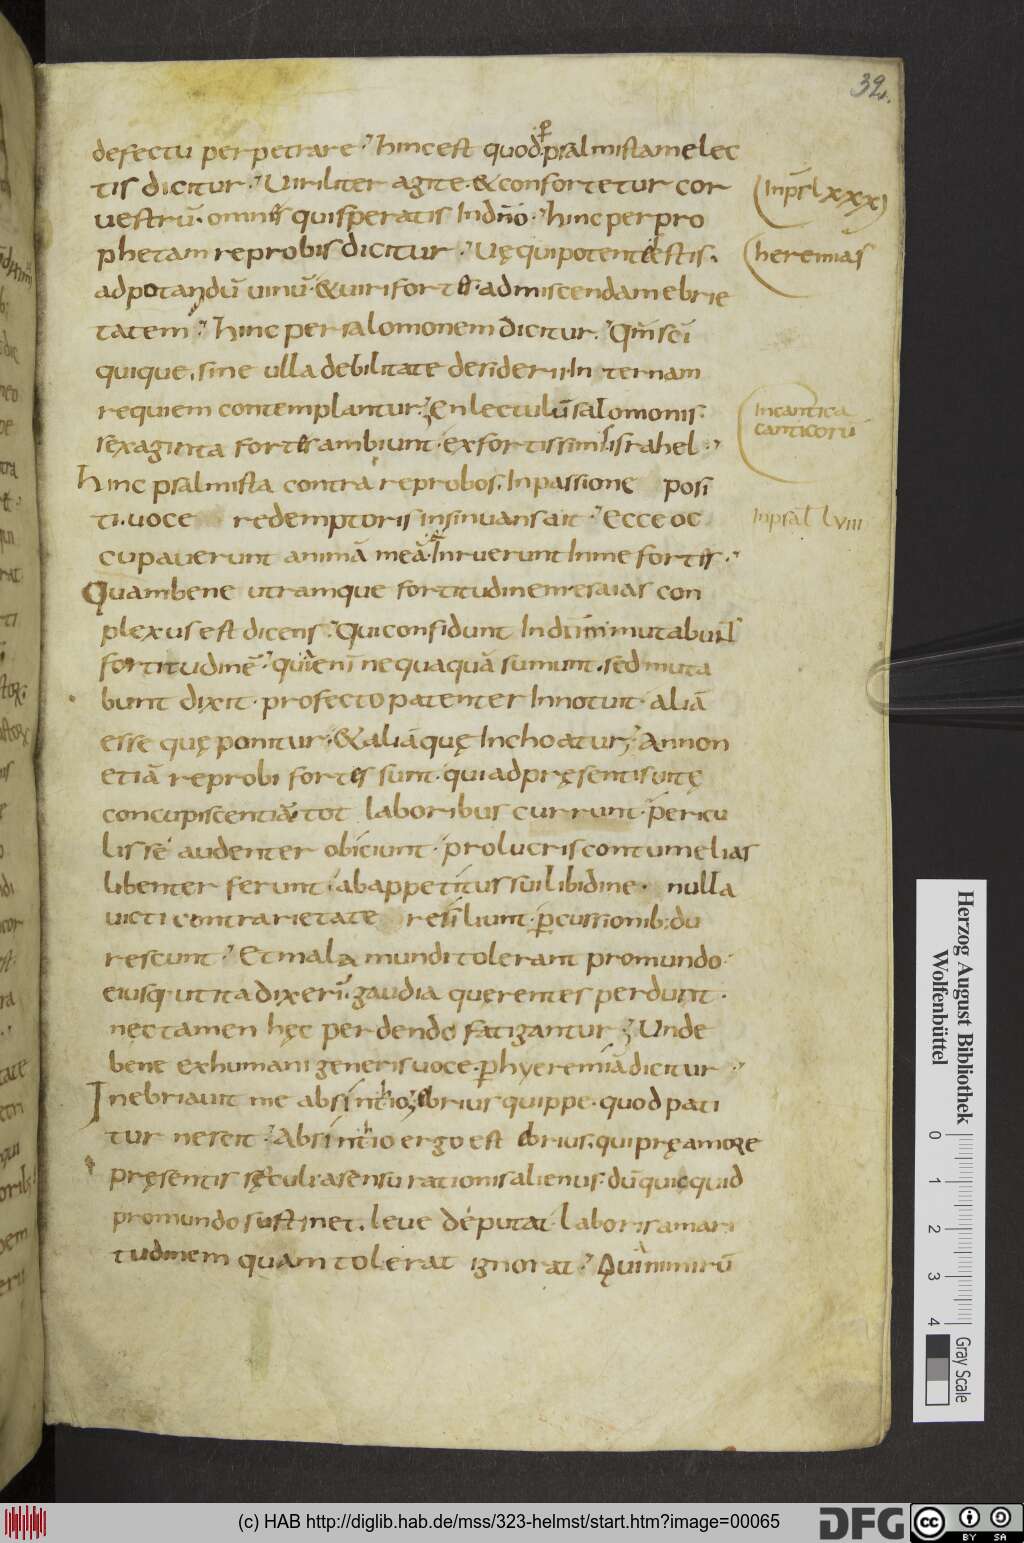 32.
defectu perpetrare. hinc est quod psalmistam elec
tis dicitur. Viriliter agite. & confortetur cor
vestrū. omnes qui speratis In dño. hinc per pro
phetam reprobis dicitur. Vę qui potentes estis.
ad potandū vinū. & viri fortes. ad miscendam ebrie
tatem. hinc per salomonem dicitur. Qm̄ sc̄i
quique, sine ulla debilitate desiderii In ternam
requiem contemplantur. En lectulū salomonis.
sexaginta fortes ambiunt. ex fortissimis israhel.
hinc psalmista contra reprobos. In passione posi
ti. voce redemptoris insinuans ait. Ecce oc
cupaverunt animā meā. Inruerunt In me fortes.
Quam bene utramque fortitudinem esaias con
plexus est dicens. Qui confidunt In dn̄m mutabunt
fortitudinē. quia enī nequaquā sumunt. sed muta
bunt dixit. profecto patenter Innotuit aliā
esse quę ponitur. & aliā quę Inchoatur. An non
etiā reprobi fortes sunt. qui ad pręsentis vitę
concupiscentiā tot laboribus currunt. pericu
lis sé audenter obiciunt. pro lucris contumelias
libenter ferunt. ab appetitus sui libidine. nulla
victi contrarietate resiliunt. p̄cussionib; du
rescunt. Et mala mundi tolerant pro mundo.
eiusq; ut ita dixerī. gaudia querentes perdunt.
nec tamen hęc perdendo fatigantur. Unde
bene ex humani generis voce. p hyeremiā dicitur
Inebriavit me absinthio. ebrius quippe. quod pati
tur nescit. Absinthio ergo est ebrius. qui pręamore
pręsentis sęculi. a sensu rationis alienus. dū quicquid
pro mundo sustinet. leve députat. laboris amari
tudinem quam tolerat ignorat. Quia nimirū
In psl xxx
heremias
In cantica
canticorū
In psal lviii
Herzog August Bibliothek
Wolfenbüttel
0 1 2 3 4
Gray Scale
(c) HAB http://diglib.hab.de/mss/323-helmst/start.htm?image=00065
DFG
cc BY SA